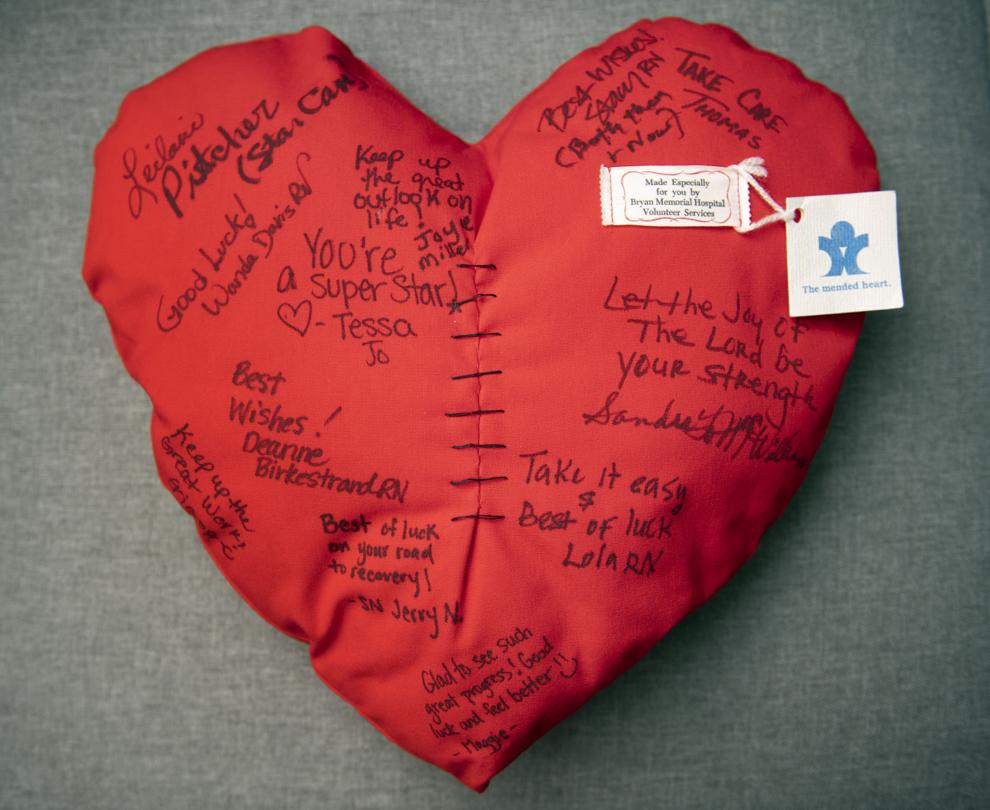 Leilani
Pitcher
(Star Care)
Good Luck!
Wanda Davis RN
Keep up
the great
outlook on
life!
Joye
Miller
You're
a Super Star!
♡ - Tessa
Jo
Best
Wishes!
Deanne
Birkestrand RN
Keep up the
great work!
Best of luck
on your road
to recovery!
- SN Jerry N.
Glad to see such
great progress! Good
luck and feel better!!
- Maggie -
Best Wishes!
RN
(Both then
+ Now)
TAKE CARE
THOMAS
Made Especially
for you by
Bryan Memorial Hospital
Volunteer Services
The mended heart.
Let the Joy of
The Lord be
YOUR strength
Take it easy
&
Best of luck
Lola RN